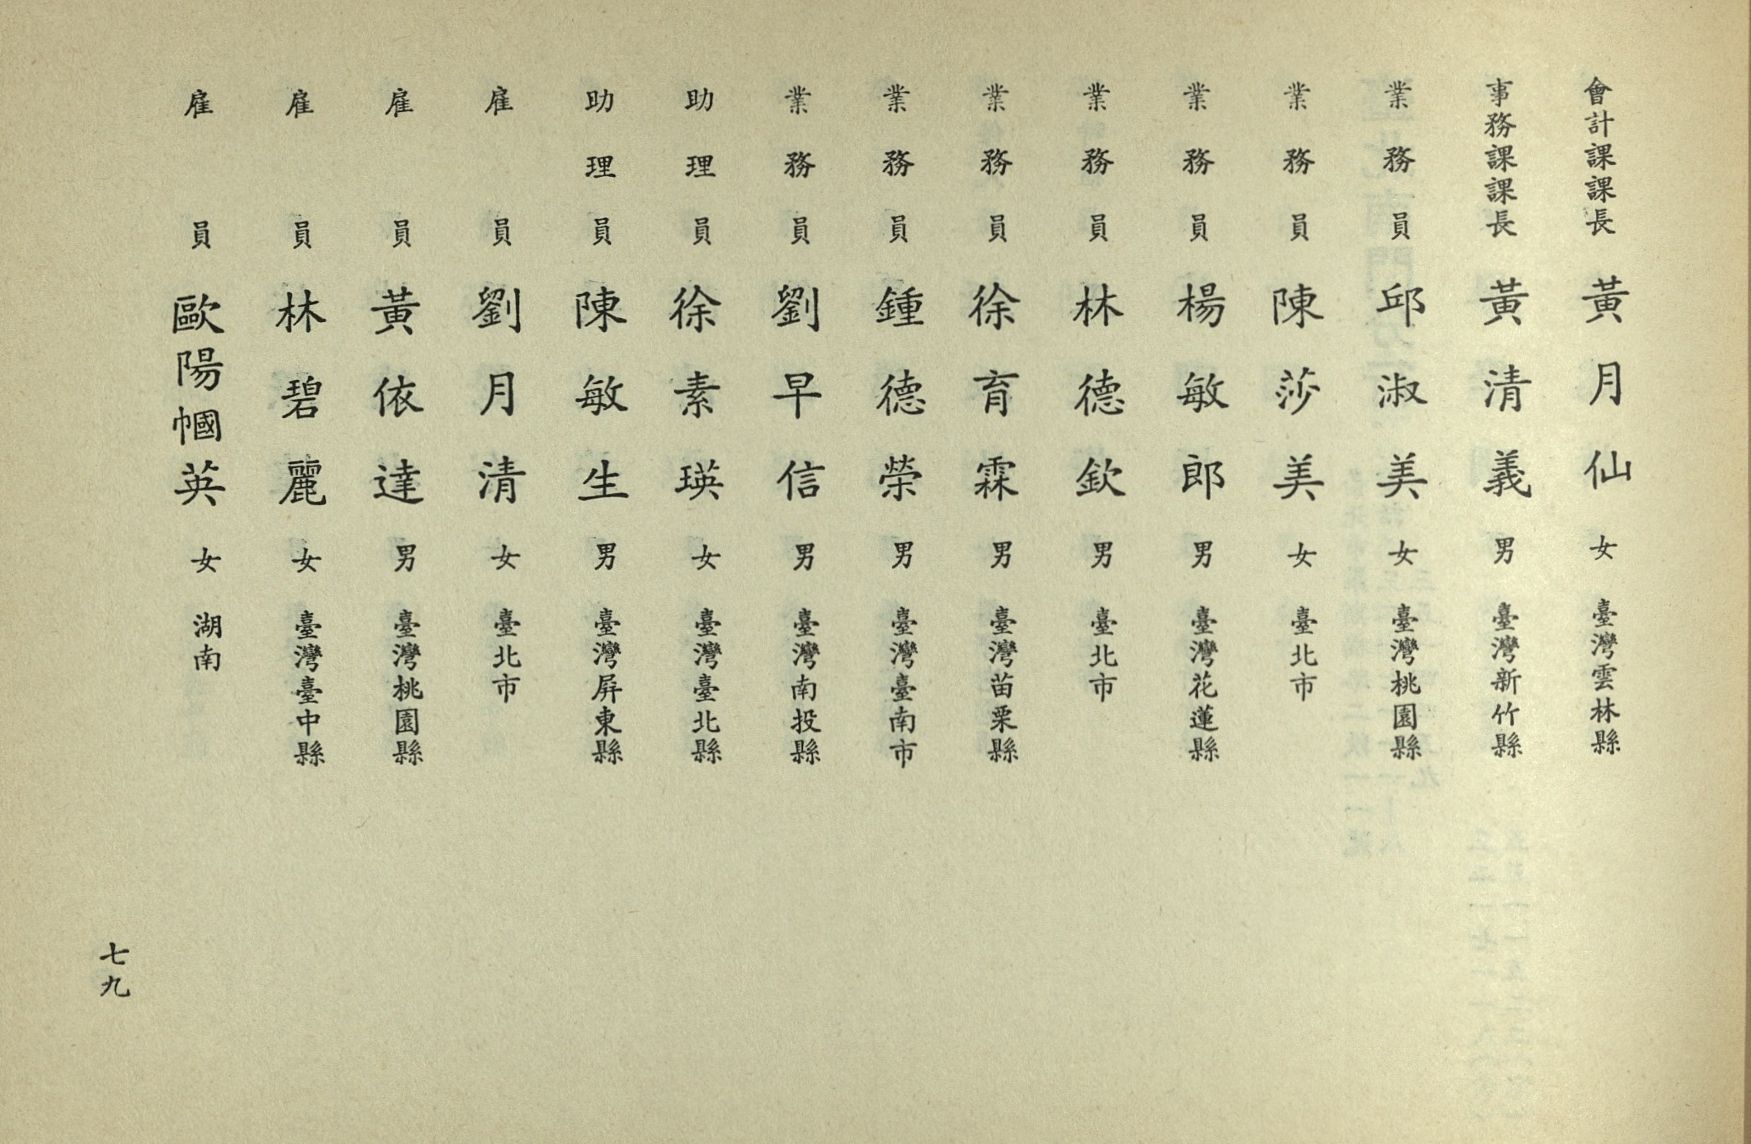 會計課課長 黃月仙 女 臺灣雲林縣
事務課課長 黃清義 男 臺灣新竹縣
業務員 邱淑美 女 臺灣桃園縣
業務員 陳莎美 女 臺北市
業務員 楊敏郎 男 臺灣花蓮縣
業務員 林德欽 男 臺北市
業務員 徐育霖 男 臺灣苗栗縣
業務員 鍾德榮 男 臺灣臺南市
業務員 劉早信 男 臺灣南投縣
助理員 徐素瑛 女 臺灣臺北縣
助理員 陳敏生 男 臺灣屏東縣
雇員 劉月清 女 臺北市
雇員 黃依達 男 臺灣桃園縣
雇員 林碧麗 女 臺灣臺中縣
雇員 歐陽幗英 女 湖南
七九